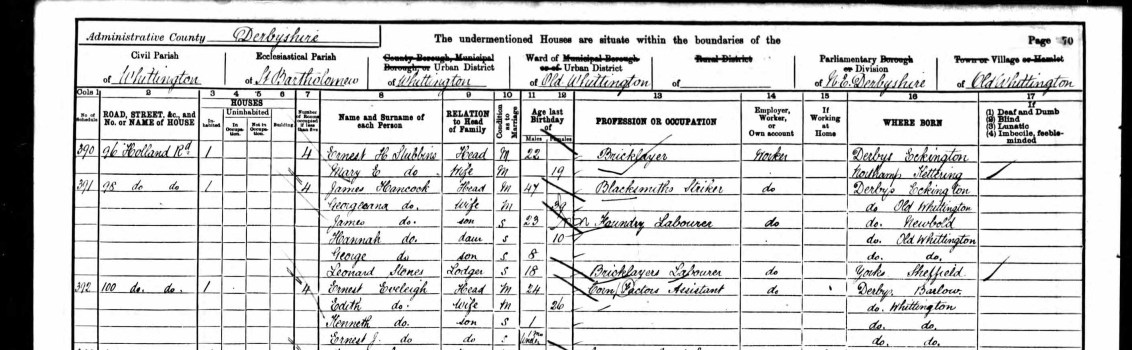 Administrative County Derbyshire The undermentioned Houses are situate within the boundaries of the Page 70
Civil Parish Ecclesiastical Parish County Borough, Municipal Borough, or Urban District Ward of Municipal Borough or of Urban District Rural District Parliamentary Borough or Division Town or Village or Hamlet
of Whittington of St Bartholomew of Whittington of Old Whittington of of N.E. Derbyshire of Old Whittington
Cols 1 2 3 4 5 6 7 8 9 10 11 12 13 14 15 16 17
No. of Schedule ROAD, STREET, &c., and No. or NAME of HOUSE HOUSES Inhabited Uninhabited In Occupation. Not in Occupation. Building Number of Rooms occupied if less than five Name and Surname of each Person RELATION to Head of Family Condition as to Marriage Age last Birthday of Males Females PROFESSION OR OCCUPATION Employer, Worker, or Own account If Working at Home WHERE BORN If (1) Deaf and Dumb (2) Blind (3) Lunatic (4) Imbecile, feeble-minded
390 96 Holland Rd 1 4 Ernest H Stubbins Head M 22 Bricklayer Worker Derbys Eckington
Mary E do Wife M 19 Kettering
391 98 do do 1 4 James Hancock Head M 47 Blacksmiths Striker do Derbys Eckington
Georgeana do. Wife M 39 do. Old Whittington
James do. son S 23 Foundry Labourer do do. Newbold
Hannah do. daur S 10 do. Old Whittington
George do son S 8 do. do.
Leonard Stones Lodger S 18 Bricklayers Labourer do Yorks Sheffield
392 100 do. do. 1 4 Ernest Eveleigh Head M 24 Corn Factors Assistant do Derby. Barlow.
Edith do. Wife M 26 do. Whittington
Kenneth do. son S 1 do. do.
Ernest J. do do S do. do.